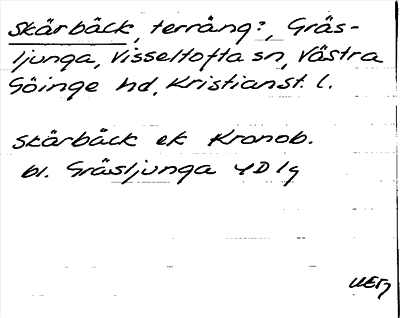 Skärbäck, terräng?, Gräs-
ljunga, Visseltofta sn, Västra
Göinge hd, Kristianst. l.
Skärbäck ek Kronob.
bl. Gräsljunga 4D1g